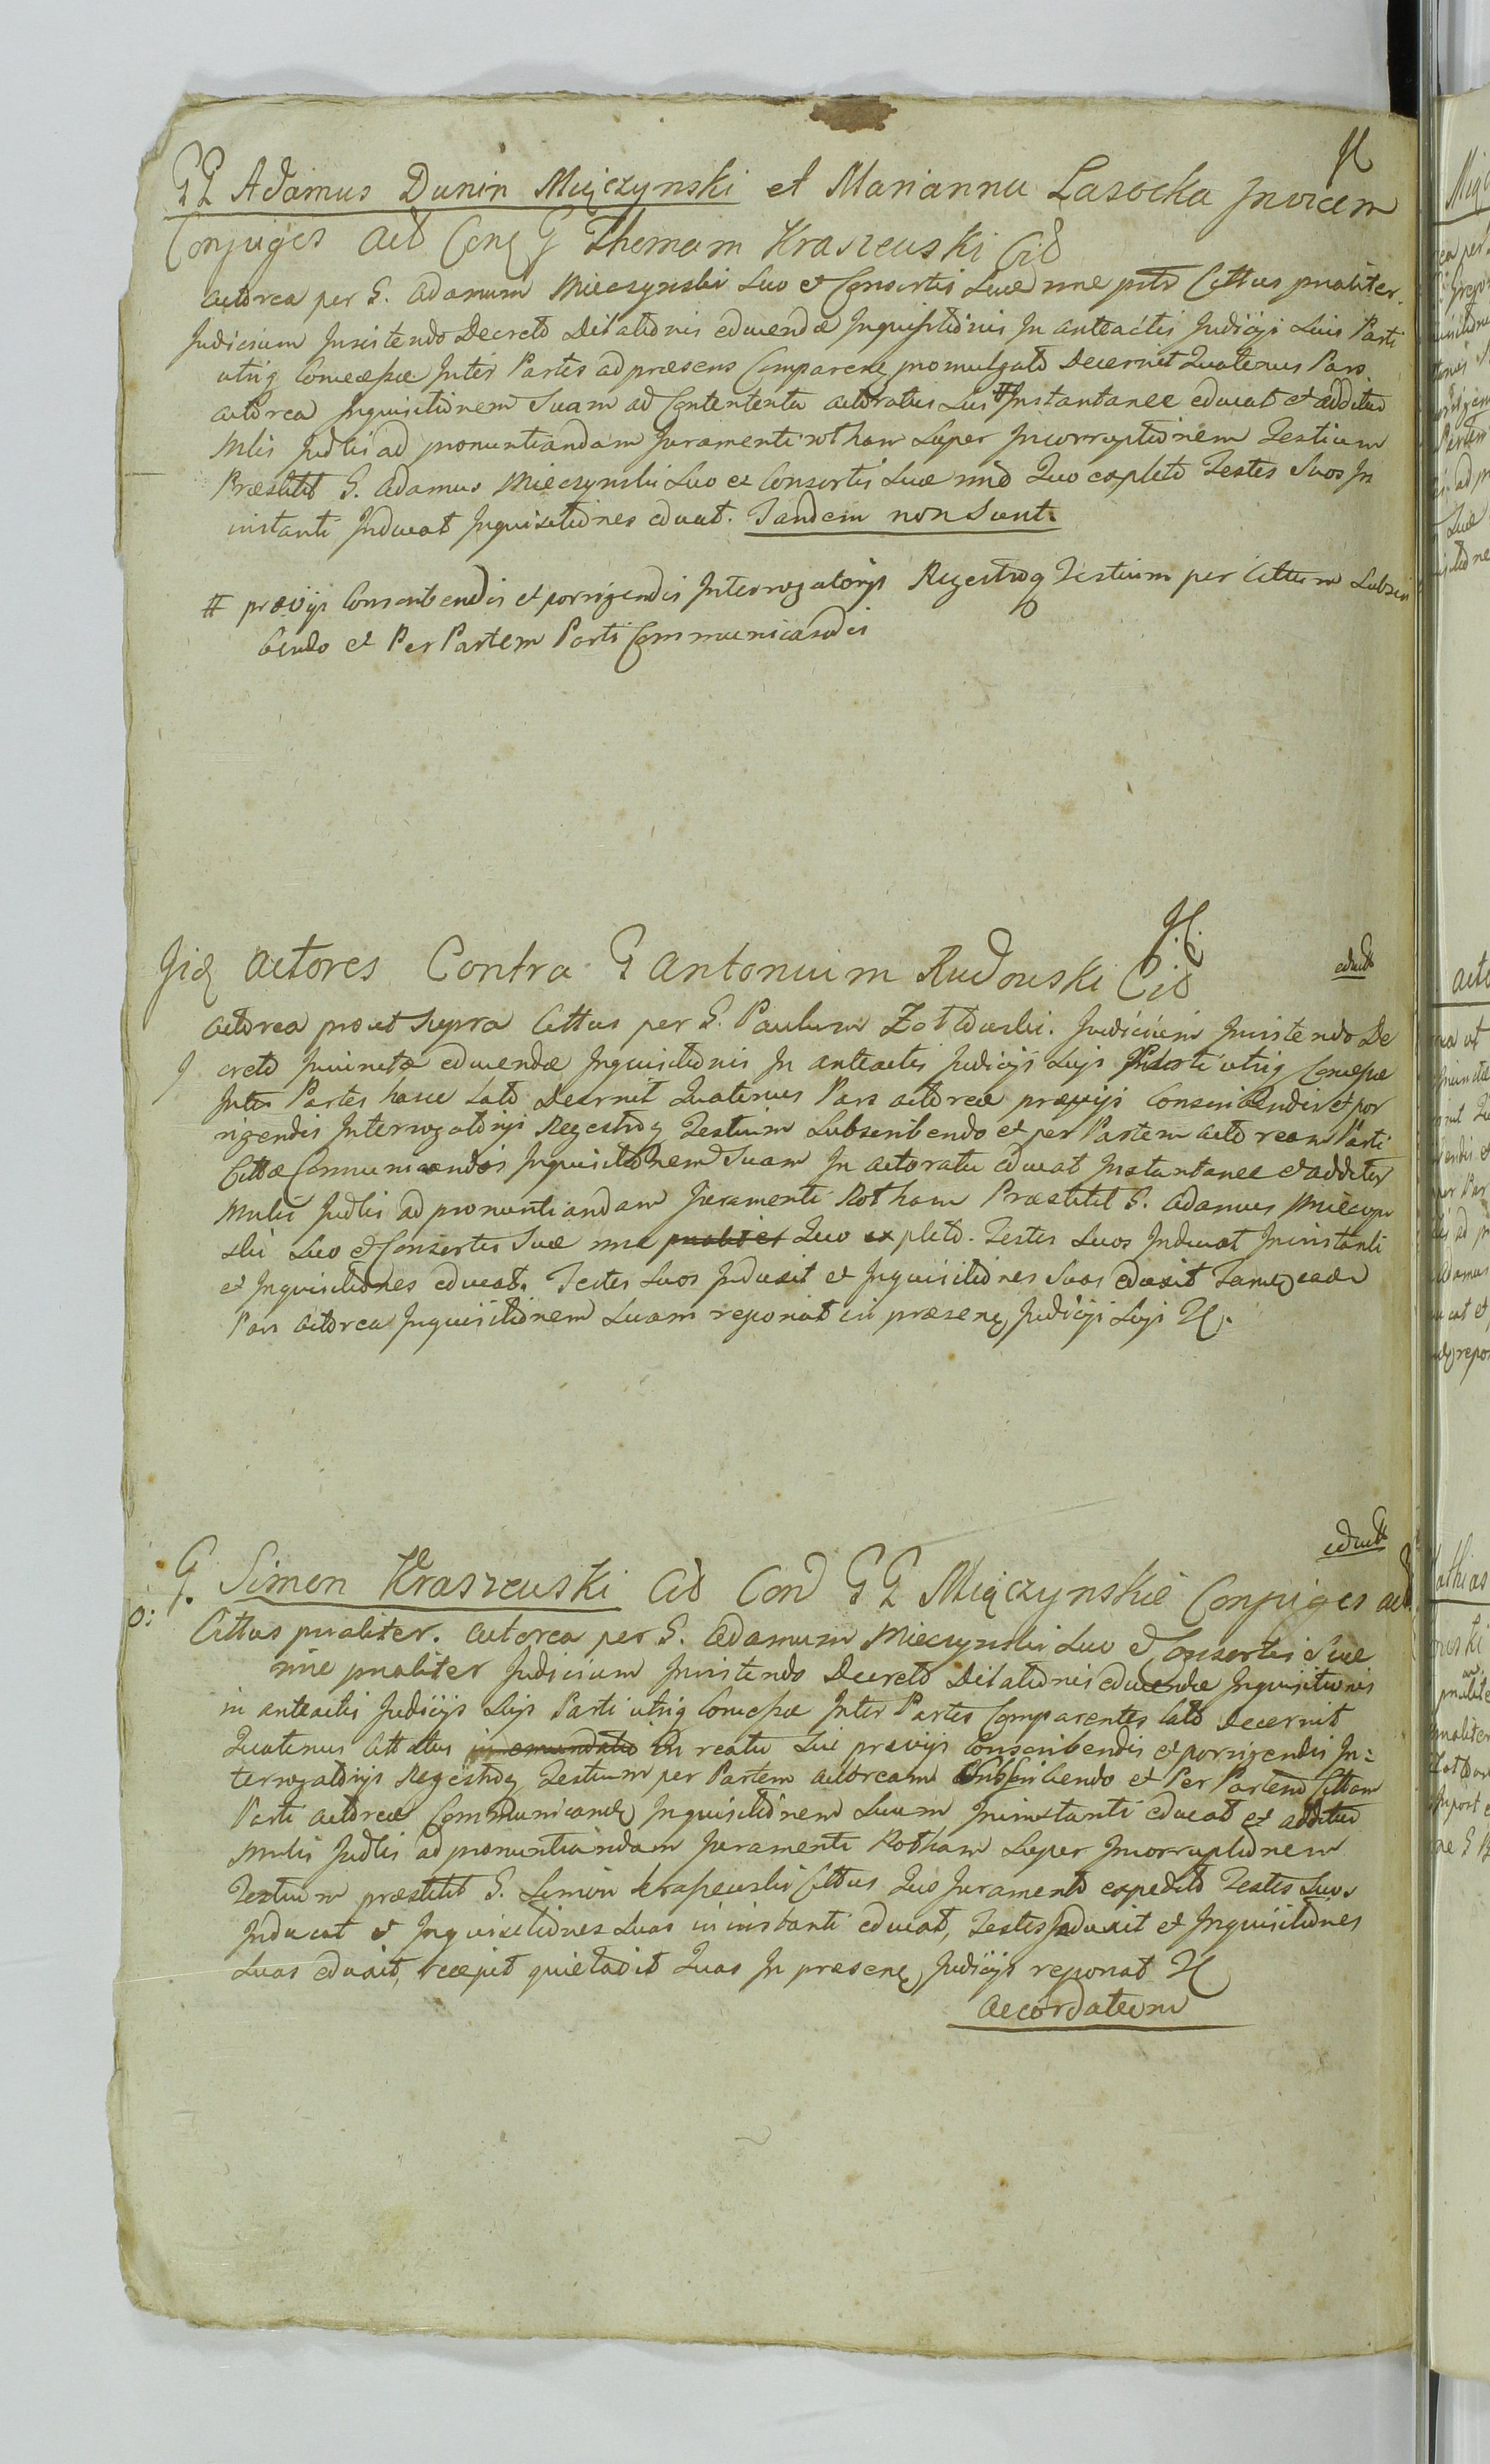 GG Adamus Dunin Miączynski et Marianna Lasocka Invicem
Conjuges act Conq G Thomam Kraszewski Citt
actorea per G. Adamum Mieczynski suo et Consortis suae nne Cittus pnaliter.
Judicium Insistendo Decreto Dilationis educendae Inquisitionis In anteactis Judicijs suis Parti
utriq Concessae Inter Partes ad praesens Comparenq promulgato Decernit Quatenus Pars
actorea Inquisitionem Suam ad Contententa actoratus sui # Instantanee educat et additur
Mlis Judlis ad pronuntiandam Juramenti rotham super Incorruptionem Testium
Praestitit G. Adamus Mieczynski suo et Consortis suae nne Quo expleto Testes Suos In
instanti Inducat Inquisitiones educat. Tandem non sunt.
# praevijs Conscribendis et porrigendis Interrogatorijs Regestroq Testium per Cittum Subscri
bendo et Per Partem Parti Communicandis
Iidq actores Contra G Antonium Rudowski Citt
educt
actorea prout supra Cittus per G. Paulum Zołtowski. Judicium Insistendo De
creto Iniunctae educendae Inquisitionis In anteactis Judicijs sujs Parti utriq Concessae
Inter Partes hasce Lato decernit Quatenus Pars actorea praevijs Conscribendis et por
rigendis Interrogatorijs Regestroq Testium Subscribendo et per Partem actoream Parti
Cittae Communicandis Inquisitionem Suam In actoratu educat Instantanee et additur
Mnlis Judlis ad pronuntiandam Juramenti Rotham Praestitit G. Adamus Mieczyn
ski suo et Consortis Suae nne pnaliter Quo expleto. Testes suos Inducat In instanti
et Inquisitiones educat. Testes suos Induxit et Inquisitiones Suas eduxit Tamq eadem
Pars actorea Inquisitionem suam reponat in praesenq Judicijs sujs
educt
G. Simon Kraszewski Citt Con GG Miączynskie Conjuges act
Cittus pnaliter. actorea per G. Adamum Mieczynski suo et Consortis Suae
nne pnaliter Judicium Insistendo Decreto Dilationis educendae Inquisitionis
in anteactis Judicijs sujs Parti utriq Concessae Inter Partes Comparentes lato decernit
Quatenus Cittatus in emundatio In reatu sui praevijs Conscribendis et porrigendis In=
terrogatorijs Regestroq Testium per Partem actoream Subscribendo et Per Partem Cittam
Parti actoreae Communicandq Inquisitionem suam In instanti educat et additur
Mnlis Judlis ad pronuntiandam Juramenti Rotham super Incorruptionem
Testium praestitit G. Simon Krassewski Cittus Quo Juramento expedito Testes suos
Inducat et Inquisitiones suas in instanti educat, Testes Induxit et Inquisitiones
suas eduxit, recepit quietavit Quas In praesenq Judicijs reponat
accordatum